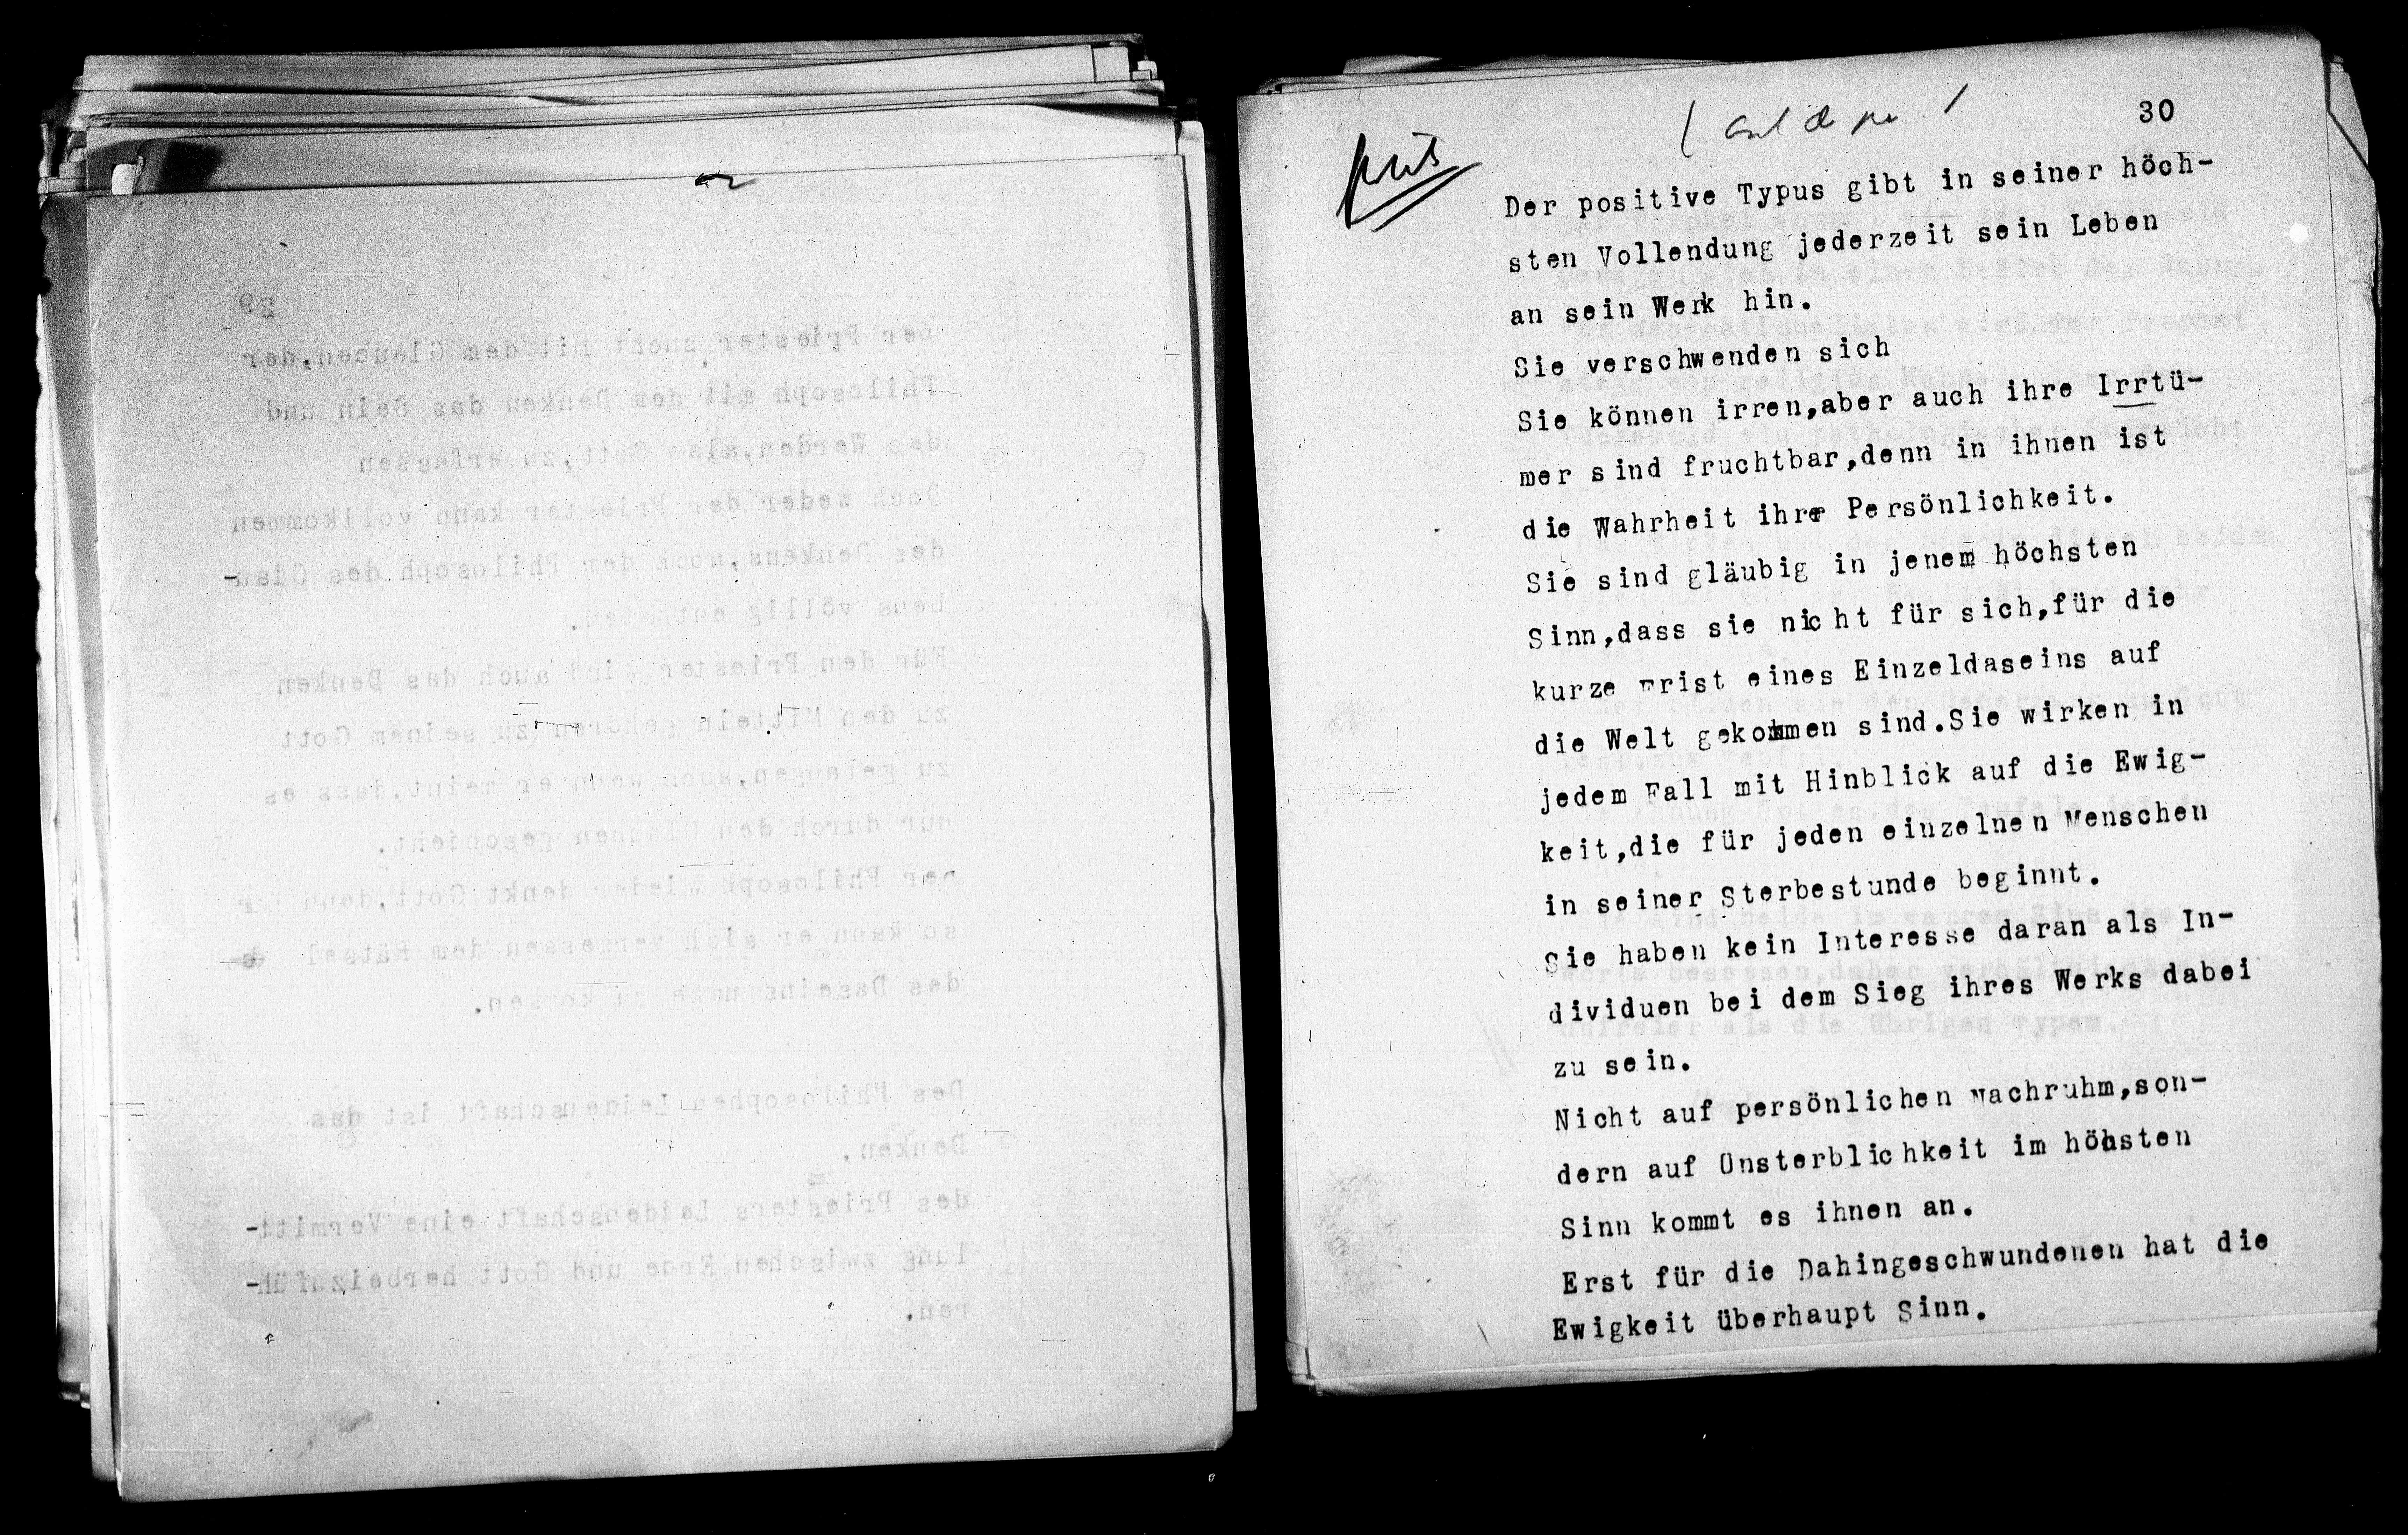 29
Der Priester sucht mit dem Glauben,der
Philosoph mit dem Denken das Sein und
das Werden,also Gott,zu erfassen
Doch weder der Priester kann vollkommen
des Denkens,noch der Philosoph des Glau-
bens völlig entraten.
Für den Priester wird auch das Denken
zu den Mitteln gehören zu seinem Gott
zu gelangen,auch wenn er meint,dass es
nur durch den Glauben geschieht.
Der Philosoph wieder denkt Gott,denn nur
so kann er sich vermessen dem Rätsel
des Daseins nahe zu kommen.
Des Philosophen Leidenschaft ist das
Denken,
des Priesters Leidenschaft eine Vermitt-
lung zwischen Erde und Gott herbeizufüh-
ren.
30
Der positive Typus gibt in seiner höch-
sten Vollendung jederzeit sein Leben
an sein Werk hin.
Sie verschwenden sich
Sie können irren,aber auch ihre Irrtü-
mer sind fruchtbar,denn in ihnen ist
die Wahrheit ihrer Persönlichkeit.
Sie sind gläubig in jenem höchsten
Sinn,dass sie nicht für sich,für die
kurze Frist eines Einzeldaseins auf
die Welt gekommen sind.Sie wirken in
jedem Fall mit Hinblick auf die Ewig-
keit,die für jeden einzelnen Menschen
in seiner Sterbestunde beginnt.
Sie haben kein Interesse daran als In-
dividuen bei dem Sieg ihres Werks dabei
zu sein.
Nicht auf persönlichen Nachruhm,son-
dern auf Unsterblichkeit im höhsten
Sinn kommt es ihnen an.
Erst für die Dahingeschwundenen hat die
Ewigkeit überhaupt Sinn.